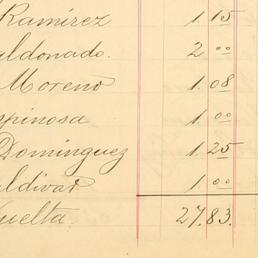 Ramírez 1.15
aldonado. 2 00
Moreno 1.08
spinosa 1.00
Dominguez 1.25
aldivar 1.00
uelta. 27.83.